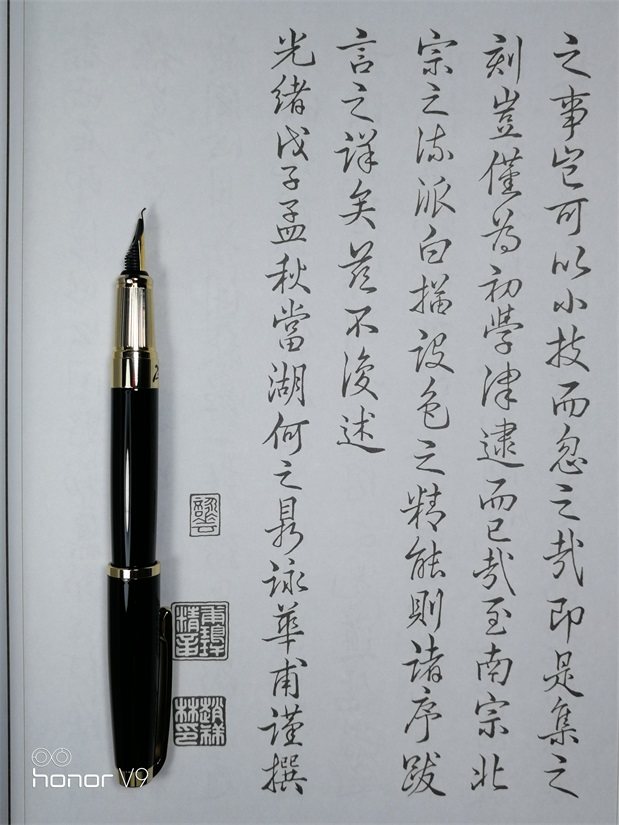 之事豈可以小技而忽之哉即是集之
刻豈僅為初學津逮而已哉至南宗北
宗之流派白描設色之精能則諸序跋
言之詳矣茲不復述
光緒戊子孟秋當湖何之鼎詠華甫謹撰
honor V9